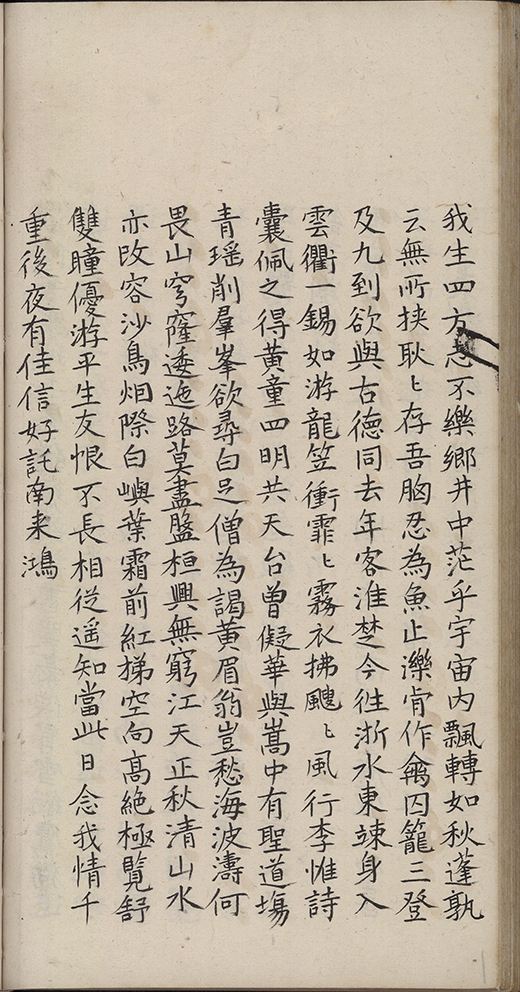 我生四方志不樂鄉井中茫乎宇宙內飄轉如秋蓬孰
云無所挾耿〻存吾胸忍為魚止濼肯作禽囚籠三登
及九到欲與古德同去年客淮楚今徃浙水東竦身入
雲衢一錫如游龍笠衝霏〻霧衣拂颼〻風行李惟詩
囊佩之得黃童四明共天台曾儗華與嵩中有聖道場
青瑶削羣峯欲尋白足僧為謁黃眉翁豈愁海波濤何
畏山穹窿逶迤路莫盡盤桓興無窮江天正秋清山水
亦改容沙鳥烟際白嶼葉霜前紅㧗空向高絶極覽舒
雙瞳優游平生友恨不長相从遥知當此日念我情千
重後夜有佳信好託南来鴻